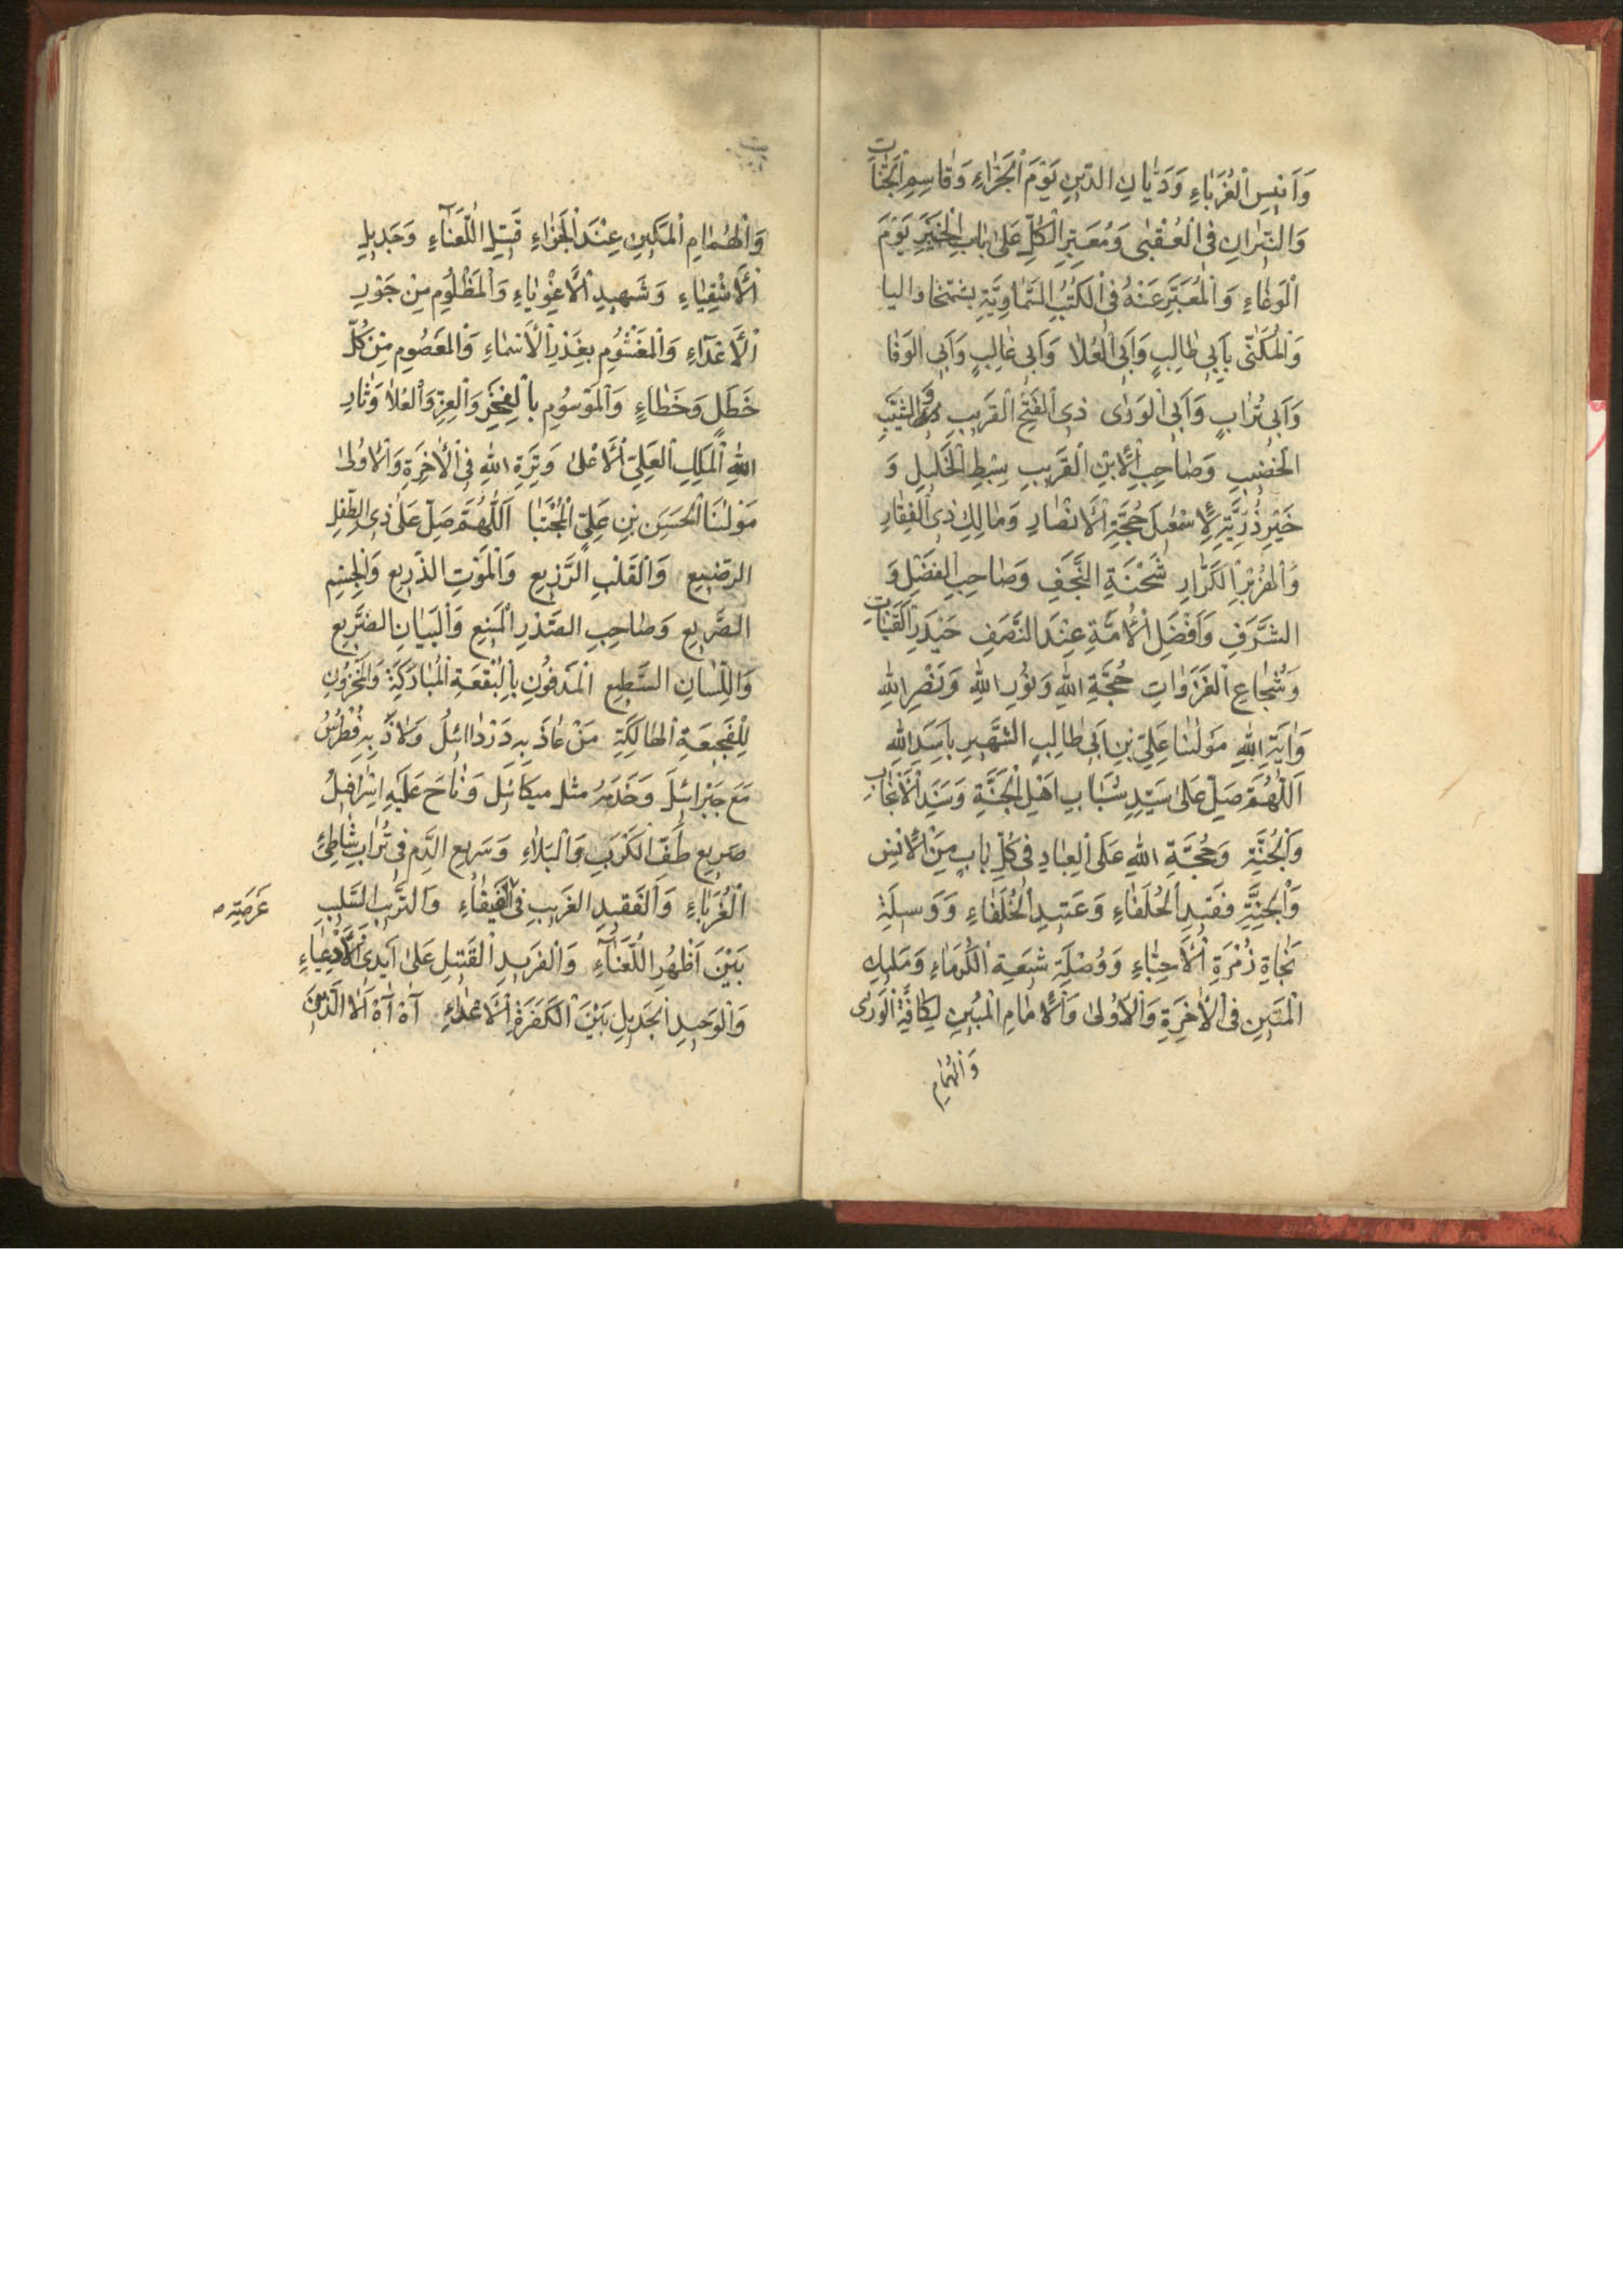 وَاَنيسِ الْغُرَبٰاءِ وَدَيّٰانِ الدّينِ يَوْمَ الْجَزٰاءِ وَقٰاسِمِ الْجَنّٰاتِ
وَالنّيرٰانِ فى الْعُقْبٰى وَمُعَبِّرِ الْكُلِّ عَلىٰ بٰابِ الْخَيْبَرِ يَوْمَ
الْوَغٰاءِ وَالْمُعَبَّرِ عَنْهُ فى الْكُتُبِ السَّمٰاوِيَّةِ
وَالْمُكَنّٰى بِاَبى طٰالِبٍ وَاَبى الْعُلا وَاَبى غٰالِبٍ وَاَبى الْوَفٰا
وَاَبى تُرٰابٍ وَاَبى الْوَرٰى ذِى الْفَتْحِ الْقَريبِ وَالشَّيْبِ
الْخَضيبِ وَصٰاحِبِ الْاِبْنِ الْقَريبِ سِبْطِ الْخَليلِ وَ
خَيْرِ ذُرِّيَّةِ لِاِسْمٰعيلَ حُجَّةِ الْاَنْصٰارِ وَمٰالِكِ ذِى الْفِقٰارِ
وَالْهِزَبْرِ الْكَرّٰارِ شَحْنَةِ النَّجَفِ وَصٰاحِبِ الْفَضْلِ وَ
الشَّرَفِ وَاَفْضَلِ الْاُمَّةِ عِنْدَ النَّصَفِ حَيْدَرِ
وَشُجٰاعِ الْغَزَوٰاتِ حُجَّةِ اللهِ وَنُورِ اللهِ وَنَصْرِ اللهِ
وَاٰيَةِ اللهِ مَوْلٰنٰا عَلِىِّ بْنِ اَبى طٰالِبٍ الشَّهيرِ بِاَسَدِ اللهِ
اَللّٰهُمَّ صَلِّ عَلىٰ سَيِّدِ شَبٰابِ اَهْلِ الْجَنَّةِ وَسَنَدِ الْاَنْجٰابِ
وَالْجُنَّةِ وَحُجَّةِ اللهِ عَلَى الْعِبٰادِ فى كُلِّ بٰابٍ مِنَ الْاِنْسِ
وَالْجِنَّةِ فَقيدِ الْحُلَفٰاءِ وَعَتيدِ الْخُلَفٰاءِ وَوَسيلَةِ
نَجٰاةِ زُمْرَةِ الْاَحِبّٰاءِ وَوُصْلَةِ شيعَةِ الْكُرَمٰاءِ وَمَليكِ
الْمَتينِ فى الْاٰخِرَةِ وَالْاُولىٰ وَالْاِمٰامِ الْمُبينِ لِكٰافَّةِ الْوَرىٰ
وَالْهُمٰامِ
وَالْهُمٰامِ الْمَكينِ عِنْدَ الْجَزٰاءِ قَتيلِ اللُّعَنٰآءِ وَجَديلِ
الْاَشْقِيٰاءِ وَشَهيدِ الْاَغْوِيٰاءِ وَالْمَظْلُومِ مِنْ جَوْرِ
الْاَعْدٰآءِ وَالْمَغْشُومِ بِغَدْرِ الْاَسْمٰاءِ وَالْمَعْصُومِ مِنْ كُلِّ
خَطَلٍ وَخَطٰاءٍ وَالْمَوْسُومِ بِالْفَخْرِ وَالْعِزِّ وَالْعُلا وَثٰارِ
اللهِ الْمَلِكِ الْعَلِىِّ الْاَعْلىٰ وَتِرَةِ اللهِ فى الْاٰخِرَةِ وَالْاُولىٰ
مَوْلٰنَا الْحَسَنِ بْنِ عَلِىٍّ الْمُجْتَبٰا اَللّٰهُمَّ صَلِّ عَلىٰ ذِى الطِّفْلِ
الرَّضيعِ وَالْقَلْبِ الرَّزيعِ وَالْمَوْتِ الذَّريعِ وَالْجِسْمِ
الصَّريعِ وَصٰاحِبِ الصَّدْرِ الْمَنيعِ وَالْبَيٰانِ الضَّريعِ
وَاللِّسٰانِ السَّطيعِ الْمَدْفُونِ بِالْبُقْعَةِ الْمُبٰارَكَةِ وَالْمَحْزُونِ
لِلْفَجيعَةِ الْهٰالِكَةِ مَنْ عٰاذَ بِهِ دَرْدٰائيلُ وَلاٰذَ بِهِ فُطْرُسُ
مَعَ جَبْرائيلَ وَخَدَمَهُ مِثْلُ ميكائيل وَنٰاحَ عَلَيْهِ اِسْرٰافيلُ
صَريعِ طَفِّ الْكَرْبِ وَالْبَلاءِ وَسَريعِ الدَّمِ فى تُرٰابِ شٰاطِئِ
الْغُرَبٰاءِ وَالْفَقيدِ الْغَريبِ فى الْفَيْفٰاءِ وَالتَّريبِ السَّليبِ
عَرْصَتِهِ
بَيْنَ اَظْهُرِ اللُّعَنٰآءِ وَالْفَريدِ الْقَتيلِ عَلىٰ اَيْدِى الْاَدْعِيٰاءِ
وَالْوَحيدِ الْجَديلِ بَيْنَ الْكَفَرَةِ الْاَعْدٰاءِ آهْ آهْ اَلاٰ الَّذينَ